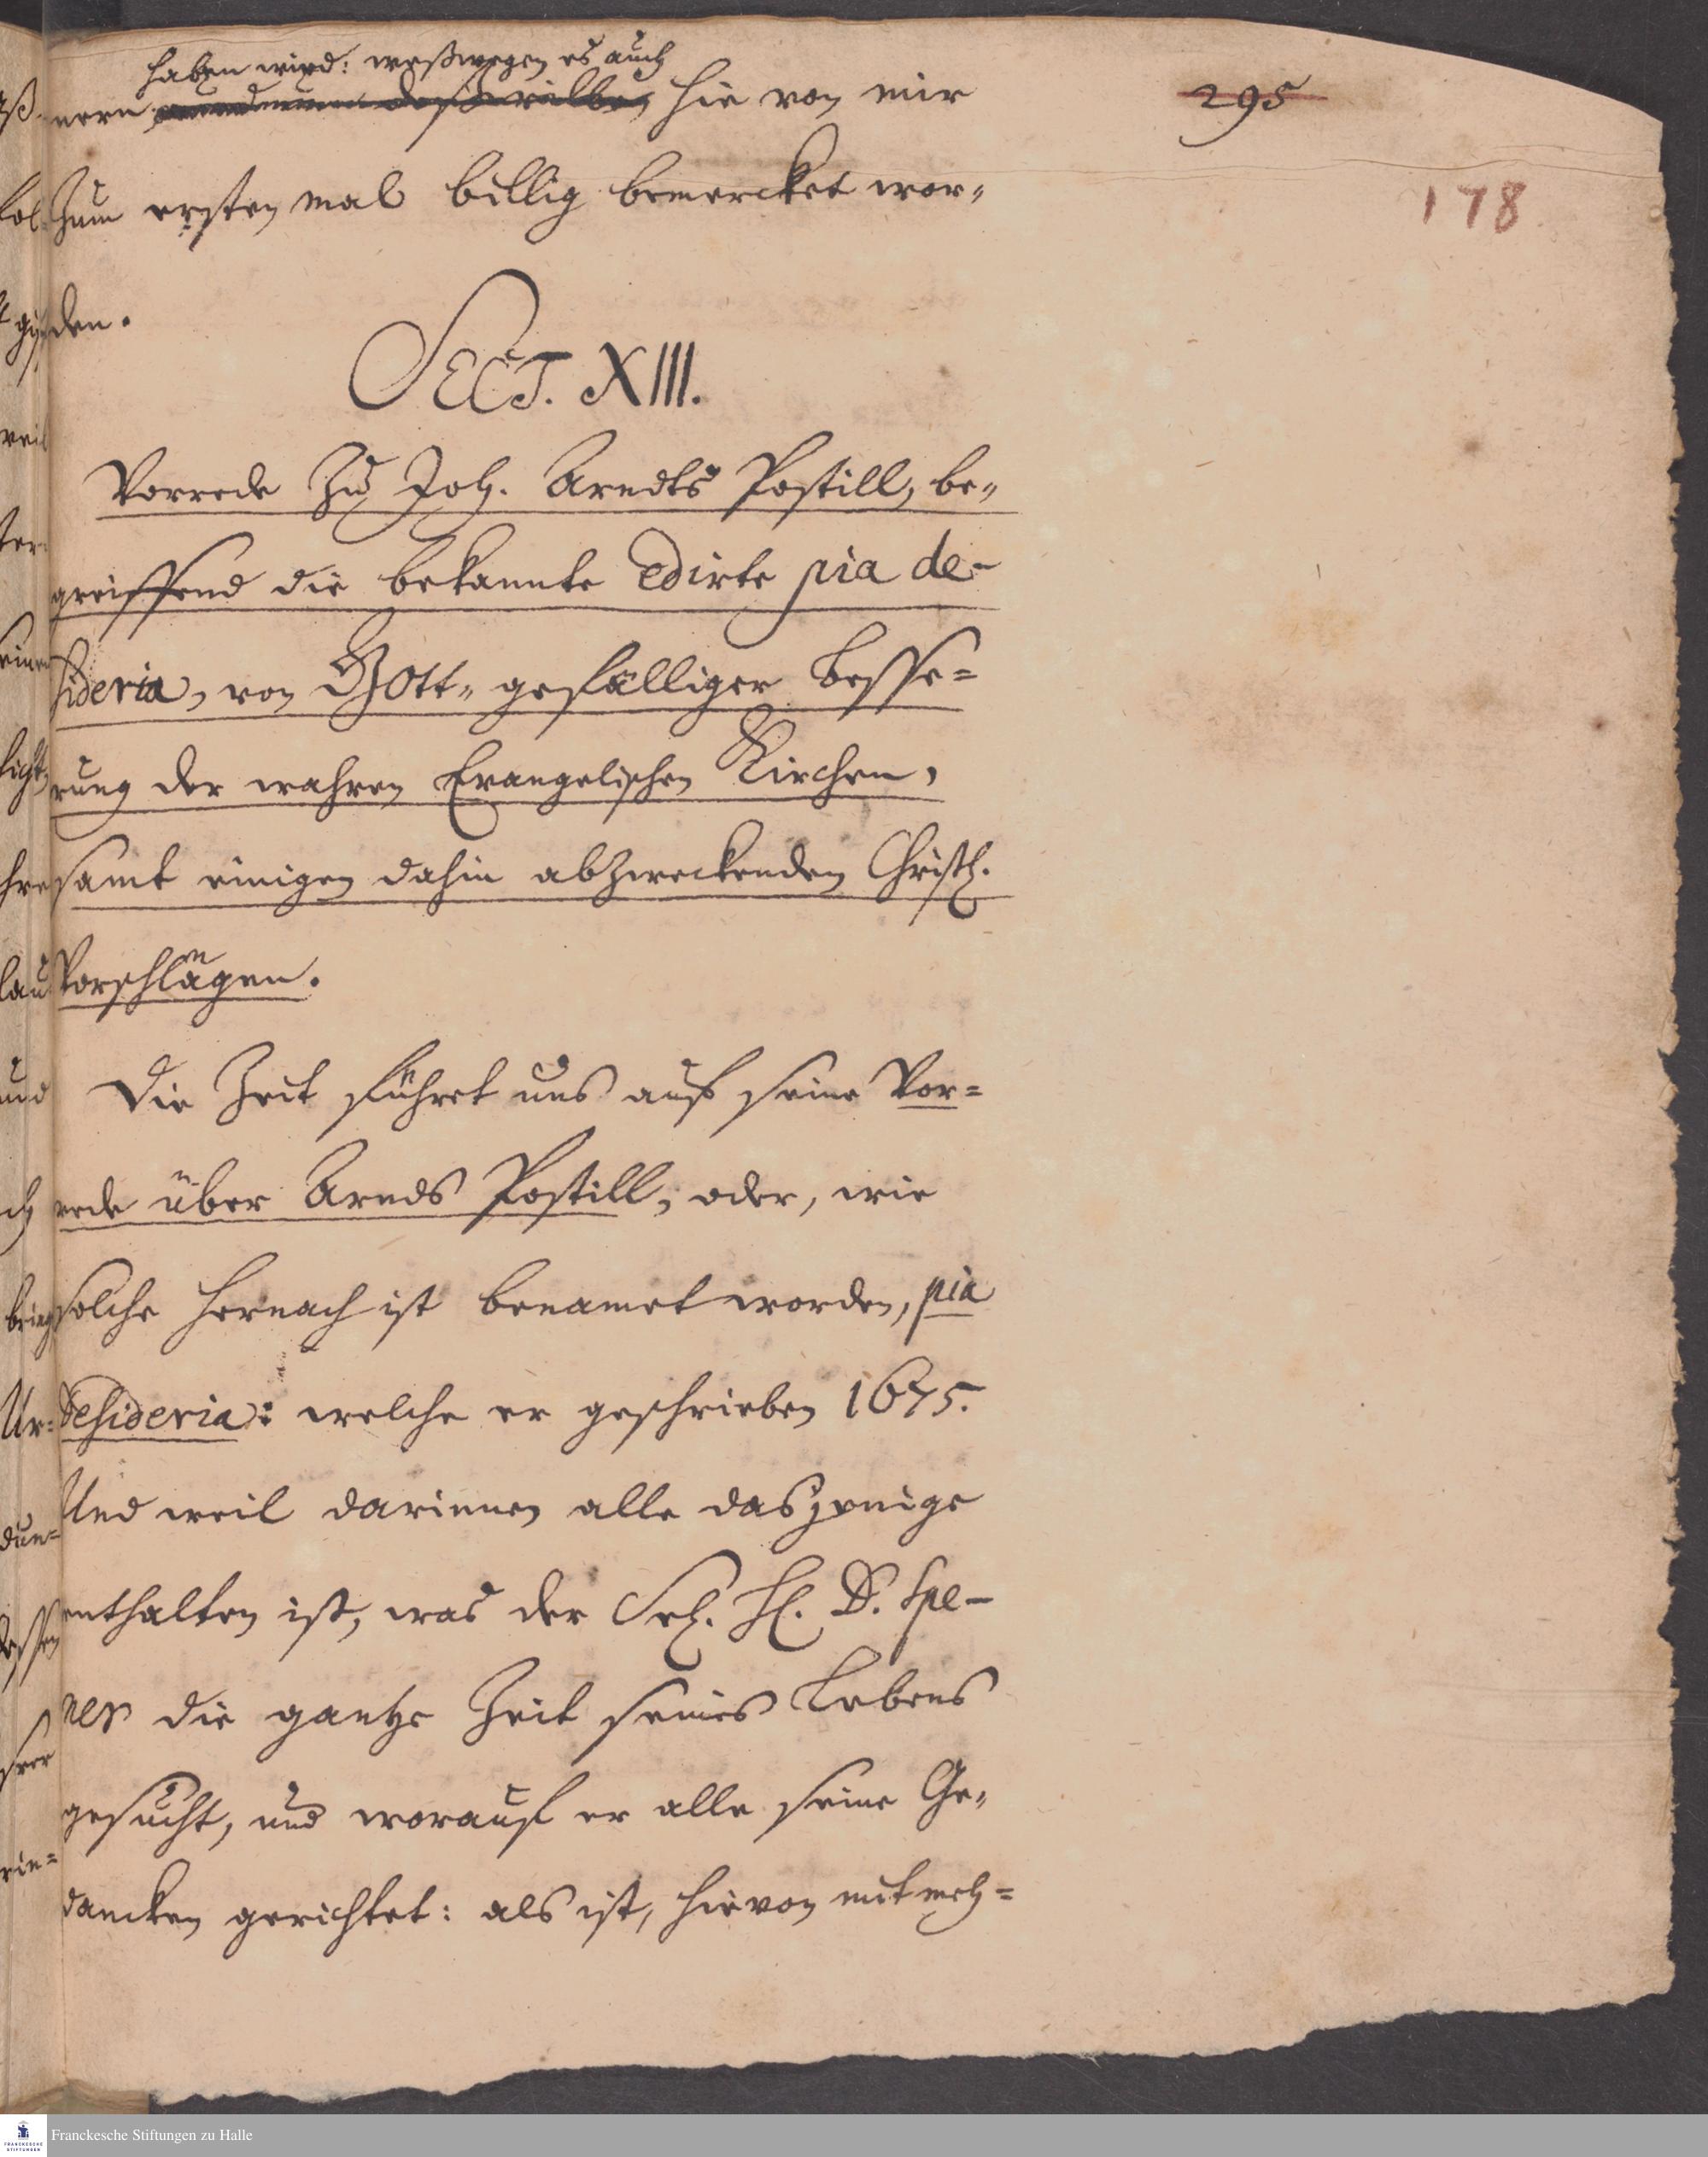 295
178
haben wird: weßwegen es auch
nern deßwillen hie von mir
zum ersten mal billig bemercket wor-
den.
SECT. XIII.
Vorrede zu Joh. Arndts Postill, be-
greiffend die bekannte edirte pia de-
sideria, von Gott-gefälliger Besse-
rung der wahren Evangelischen Kirchen,
samt einigen dahin abzweckenden Christl.
Vorschlägen.
Die Zeit führet uns auf seine Vor-
rede über Arnds Postill, oder, wie
solche hernach ist benamet worden, pia
Desideria: welche er geschrieben 1675.
Und weil darinnen alle dasjenige
enthalten ist, was der Sel. H. D. Spe-
ner die gantze Zeit seines Lebens
gesucht, und worauf er alle seine Ge-
dancken gerichtet: als ist, hievon mit meh-
Franckesche Stiftungen zu Halle